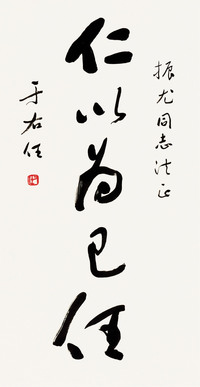 振尤同志法正
仁以为己任
于右任